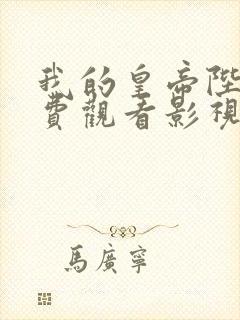 我的皇帝陛
費觀看影視
馬廣寧